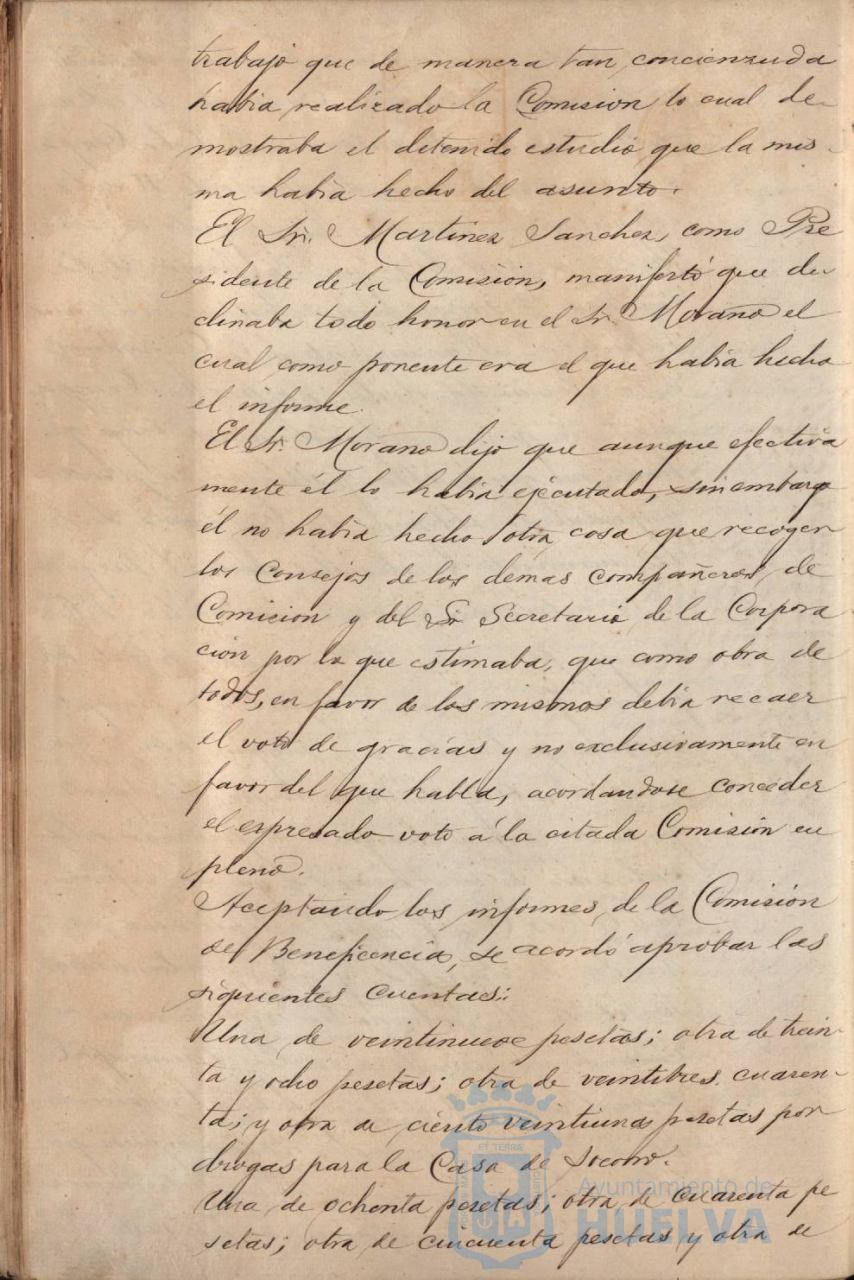 trabajo que de manera tan concienzuda
habia realizado la Comision lo cual de-
mostraba el detenido estudio que la mis-
ma habia hecho del asunto.
El Sr. Martinez Sanchez, como Pre
sidente de la Comisión, manifestó que de-
clinaba todo honor en el Sr. Morano el
cual como ponente era el que habia hecho
el informe.
El Sr. Morano dijo que aunque efectiva
mente él lo habia ejecutado, sin embargo
él no habia hecho otra cosa que recoger
los Consejos de los demas compañeros de
Comicion y del Sr Secretario de la Corpora-
cion por lo que estimaba, que como obra de
todos, en favor de los mismos debia recaer
el voto de gracias y no exclusivamente en
favor del que habla, acordandose conceder
el espresado voto á la citada Comisión en
pleno.
Aceptando los informes de la Comisión
de Beneficencia, se acordó aprobar las
siguientes cuentas:
Una de veintinueve pesetas; otra de trein-
ta y ocho pesetas; otra de veintitres cuaren-
ta; y otra de ciento veintiuna pesetas por
drogas para la Casa de Socorro.
Una de ochenta pesetas; otra de cuarenta pe
setas; otra de cincuenta pesetas y otra de
ET TERRÆ
Ayuntamiento de
HUELVA